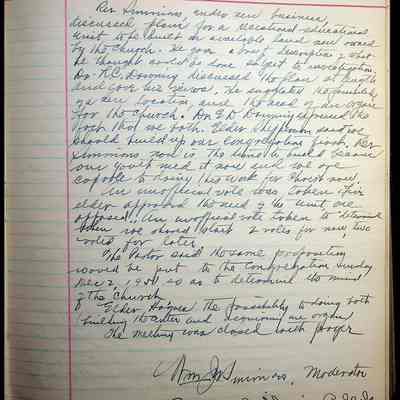 Rev Simmons, under new business,
discussed plans for a vocational educational
unit to be built on available land now owned
by the church. He gave a brief description of what
he thought could be done subject to investigation.
Dr. R.C. Downing discussed the plan at length
and gave his views. He suggested the possibility
of a new location and the need of an organ
for the church. Dr. E.D. Downing expressed the
fact that we both. Elder Shipman said we
should build up our congregation first. Rev
Simmons now is the time to build because
our youth need it now and we are
capable of doing this work for Christ now.
An unofficial vote was taken. Five
elder approved the need of the unit one
opposed. An unofficial vote taken to determine
when we should start 2 votes for now, two
votes for later.
The Pastor said the same proposition
would be put to the congregation Sunday
Dec 2, 19 so as to determine the mind
of the church
Elder Haynes the possibility of doing both
building the center and acquiring an organ
The meeting was closed with prayer
Wm J Simmons, Moderator